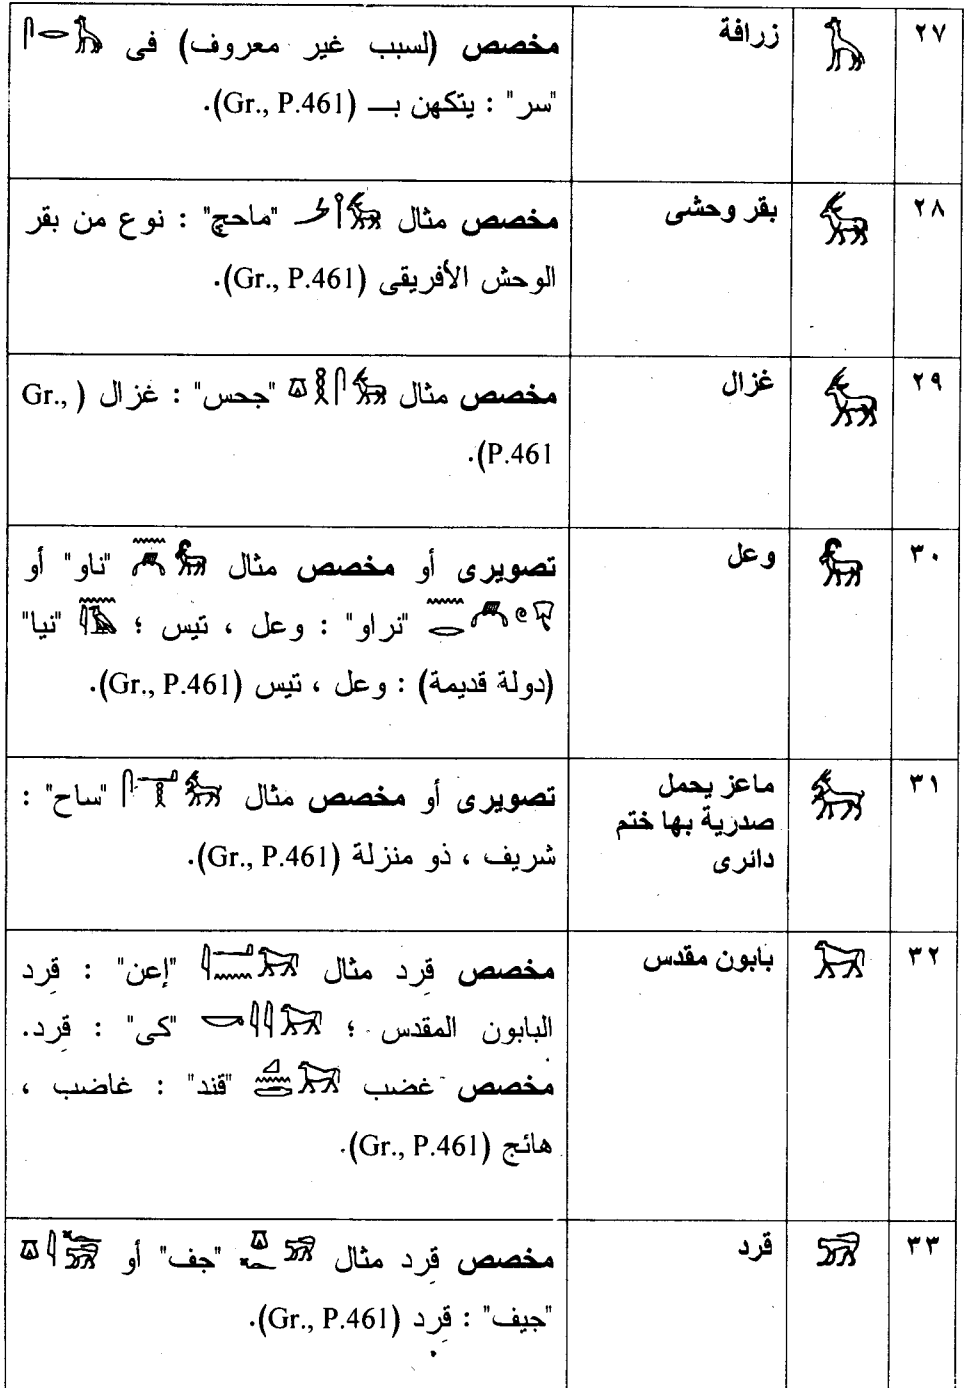 ٢٧ زرافة مخصص (لسبب غير معروف) فى
"سر" : يتكهن بـ (Gr., P.461).
٢٨ بقر وحشى مخصص مثال "ماحچ" : نوع من بقر
الوحش الأفريقى (Gr., P.461).
٢٩ غزال مخصص مثال "جحس" : غزال (Gr.,
P.461).
٣٠ وعل تصويرى أو مخصص مثال "ناو" أو
"نراو" : وعل ، تيس ؛ "نيا"
(دولة قديمة) : وعل ، تيس (Gr., P.461).
٣١ ماعز يحمل
صدرية بها ختم
دائرى
تصويرى أو مخصص مثال "ساح" :
شريف ، ذو منزلة (Gr., P.461).
٣٢ بابون مقدس مخصص قرد مثال "إعن" : قرد
البابون المقدس ؛ "كى" : قرد.
مخصص غضب "قند" : غاضب ،
هائج (Gr., P.461).
٣٣ قرد مخصص قرد مثال "جف" أو
"جيف" : قرد (Gr., P.461).